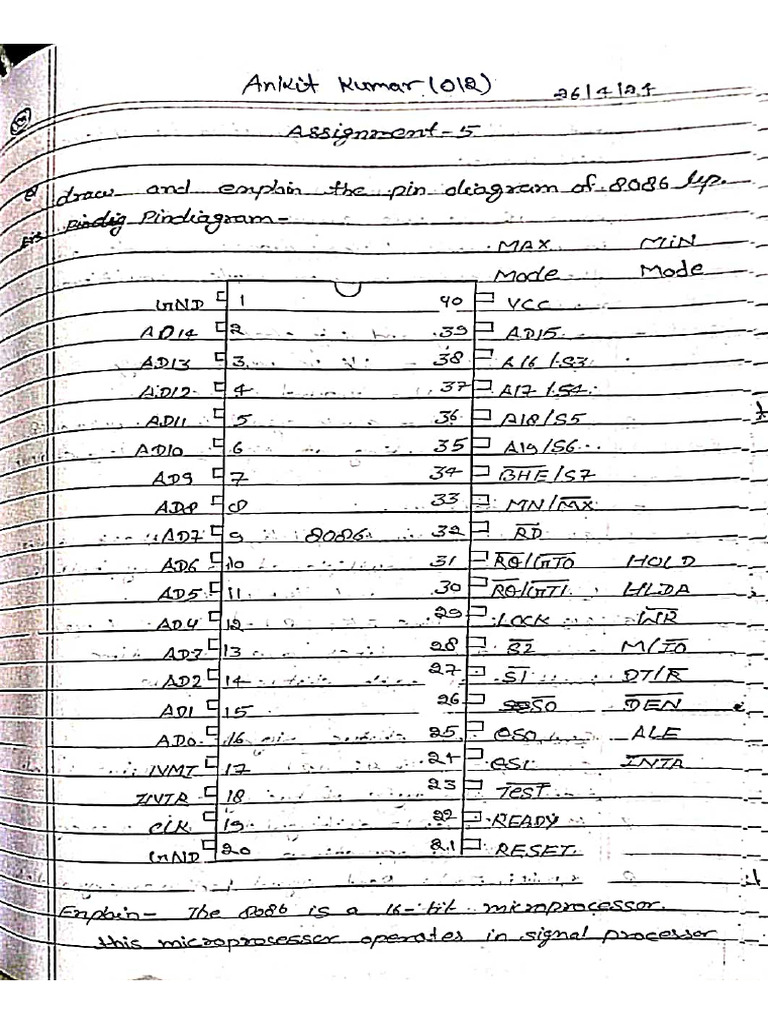 Ankit Kumar (012) 26/4/24
Assignment-5
Q draw and enplain the pin diagram of 8086 Up.
Pindiagram-
MAX MIN
Mode Mode
GND 1 40 VCC
AD14 2 39 AD15
AD13 3 38 A16/S3
AD12 4 37 A17/S4
AD11 5 36 A18/S5
AD10 6 35 A19/S6
AD9 7 34 B̅H̅E̅/S7
AD8 8 33 MN/M̅X̅
AD7 9 8086 32 R̅D̅
AD6 10 31 R̅Q̅/G̅T̅0̅ HOLD
AD5 11 30 R̅Q̅/G̅T̅1̅ HLDA
AD4 12 29 LOCK W̅R̅
AD3 13 28 S̅2̅ M/I̅O̅
AD2 14 27 S̅1̅ DT/R̅
AD1 15 26 S̅0̅ D̅E̅N̅
AD0 16 25 QS0 ALE
17 24 QS1 I̅N̅T̅A̅
18 23 T̅e̅s̅T̅
CLK 19 22 READY
GND 20 21 RESET
Enplain- The 8086 is a 16-bit microprocessor.
this microprocesser operates in signal processor